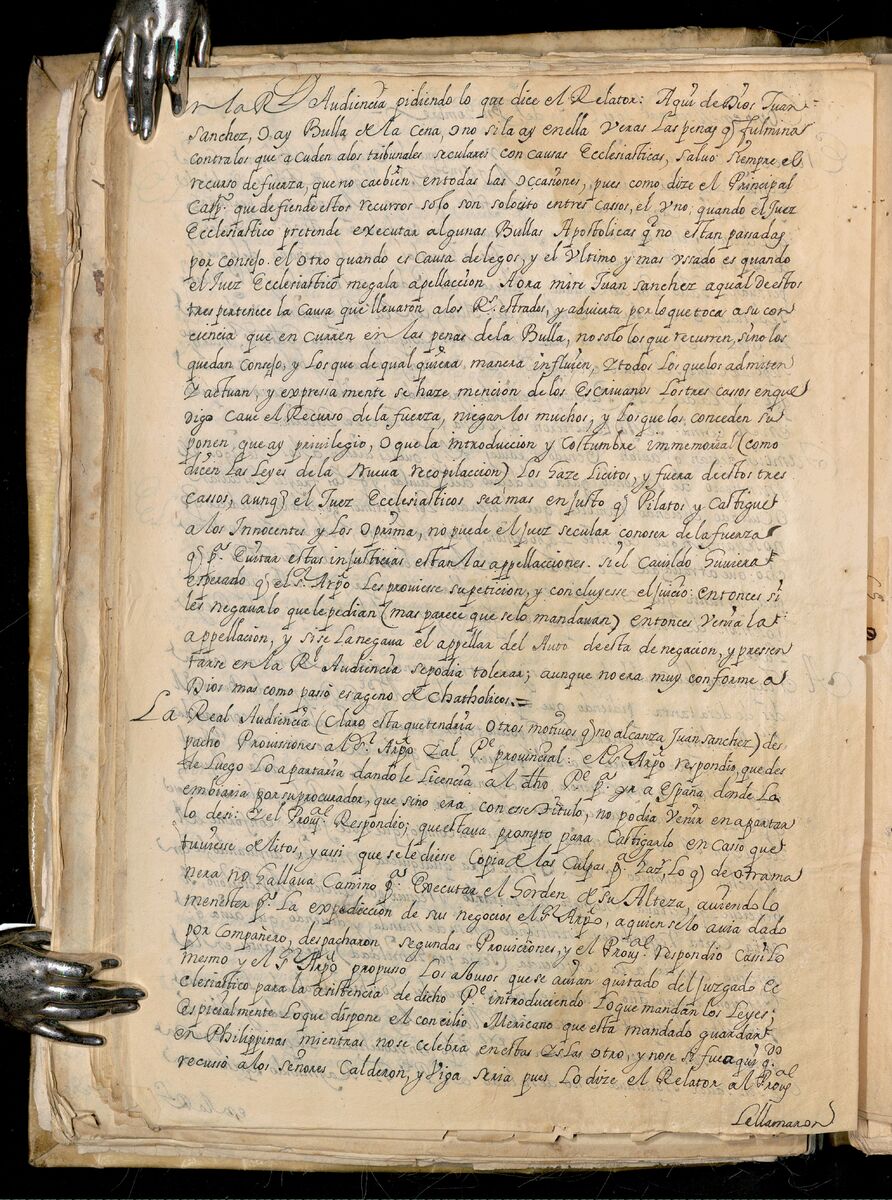 en la Rl Audiencia pidiendo lo que dice el Relator: Aqui de Dios Juan
Sanchez, O ay Bulla de la Cena, O no si la ay en ella veras las penas q̃ fulmina
contra los que acuden a los tribunales seculares con causas Ecclesiasticas, salvo siempre el
recurso de fuerza, que no cae bien en todas las Occasiones, pues como dize el Principal
que defiende estos recursos solo son solocito en tres Cassos, el Vno, quando el Juez
Ecclesiastico pretende executar algunas Bullas Apostolicas q̃ no estan passadas
por Consejo. el Otro quando es Causa de legos, y el Vltimo y mas vssado es quando
el Juez Ecclesiastico niega la apellaccion Aora mire Juan Sanchez a qual de estos
tres pertenece la Causa que llevaron a los Rs. estrados, y advierta por lo que toca a su con
ciencia que en curren en las penas de la Bulla, no solo los que recurren, sino los
que dan Consejo, y Los que de qual quiera manera influien, Y todos Los que los admiten
Y actuan, y expressa mente se haze mención de los Escrivanos Los tres cassos en que
digo Cave el Recurso de la fuerza, niegan los muchos, y Los que los conceden su
ponen que ay privilegio, O que la introduccion y Costumbre immemorial (como
dicen Las Leyes de la Nueva recopilaccion) Los haze Licitos, y fuera de estos tres
Cassos, aunq̃ el Juez Ecclesiasticos sea mas enjusto q̃ Pilatos y Castigue
a los Innocentes y Los Oprima, no puede el Juez secular conoser de la fuerza
q̃ pa. Evitar estas injusticias estan las appellacciones. Si el Cavildo huviera
esperado q̃ el Sr. Arpo Les proviesse su peticion, y concluyesse el juicio: entonces si
les negava lo que le pedian (mas parece que se lo mandavan) entonces venia la
appellacion, y si se La negava el appellar del Auto de esta denegacion, y pressen
tarse en la Rl. Audiencia se podia tolerar; aunque no era muy conforme a
Dios mas como passó es ageno de Chatholicos.=
La Real Audiencia (Claro esta que tendria Otros motivos q̃ no alcanza Juan Sanchez) des
pacho Provissiones al Sr. Arpo Y al Pe. provincial: el Sr. Arpo respondio, que des
de Luego Lo apartaria dandole Licencia al dho Pe. pa. yr a España donde La
embiaria por su procurador, que sino era con esse titulo, no podia venir en apartar
lo de si: Y el Provl. Respondio; que estava prompto para Castigarlo en Casso que
tuviesse delitos, y assi que se le diesse Copia de las Culpas pa. Lo q̃ de otra ma
nera no hallava Camino pa. Executar el horden de su Alteza, aviendo lo
menester pa. La expediccion de sus negocios el Sr. Arpo, a quien se lo avia dado
por Compañero, despacharon segundas Provicciones, y el Provl. respondio Cassi Lo
mesmo y el Sr. Arpo propusso Los abusos que se avian quitado del Juzgado Ec
clesiastico para la asistencia de dicho Pe. introduciendo Lo que mandan los Leyes;
Especialmente Lo que dispone el concilio Mexicano que esta mandado guardar
en Philippinas mientras no se celebra en estas Yslas otro, y no se si fue aqui qdo
recussó a los señores Calderon, y Viga seria pues Lo dize el Relator al Provl
Le llamaron